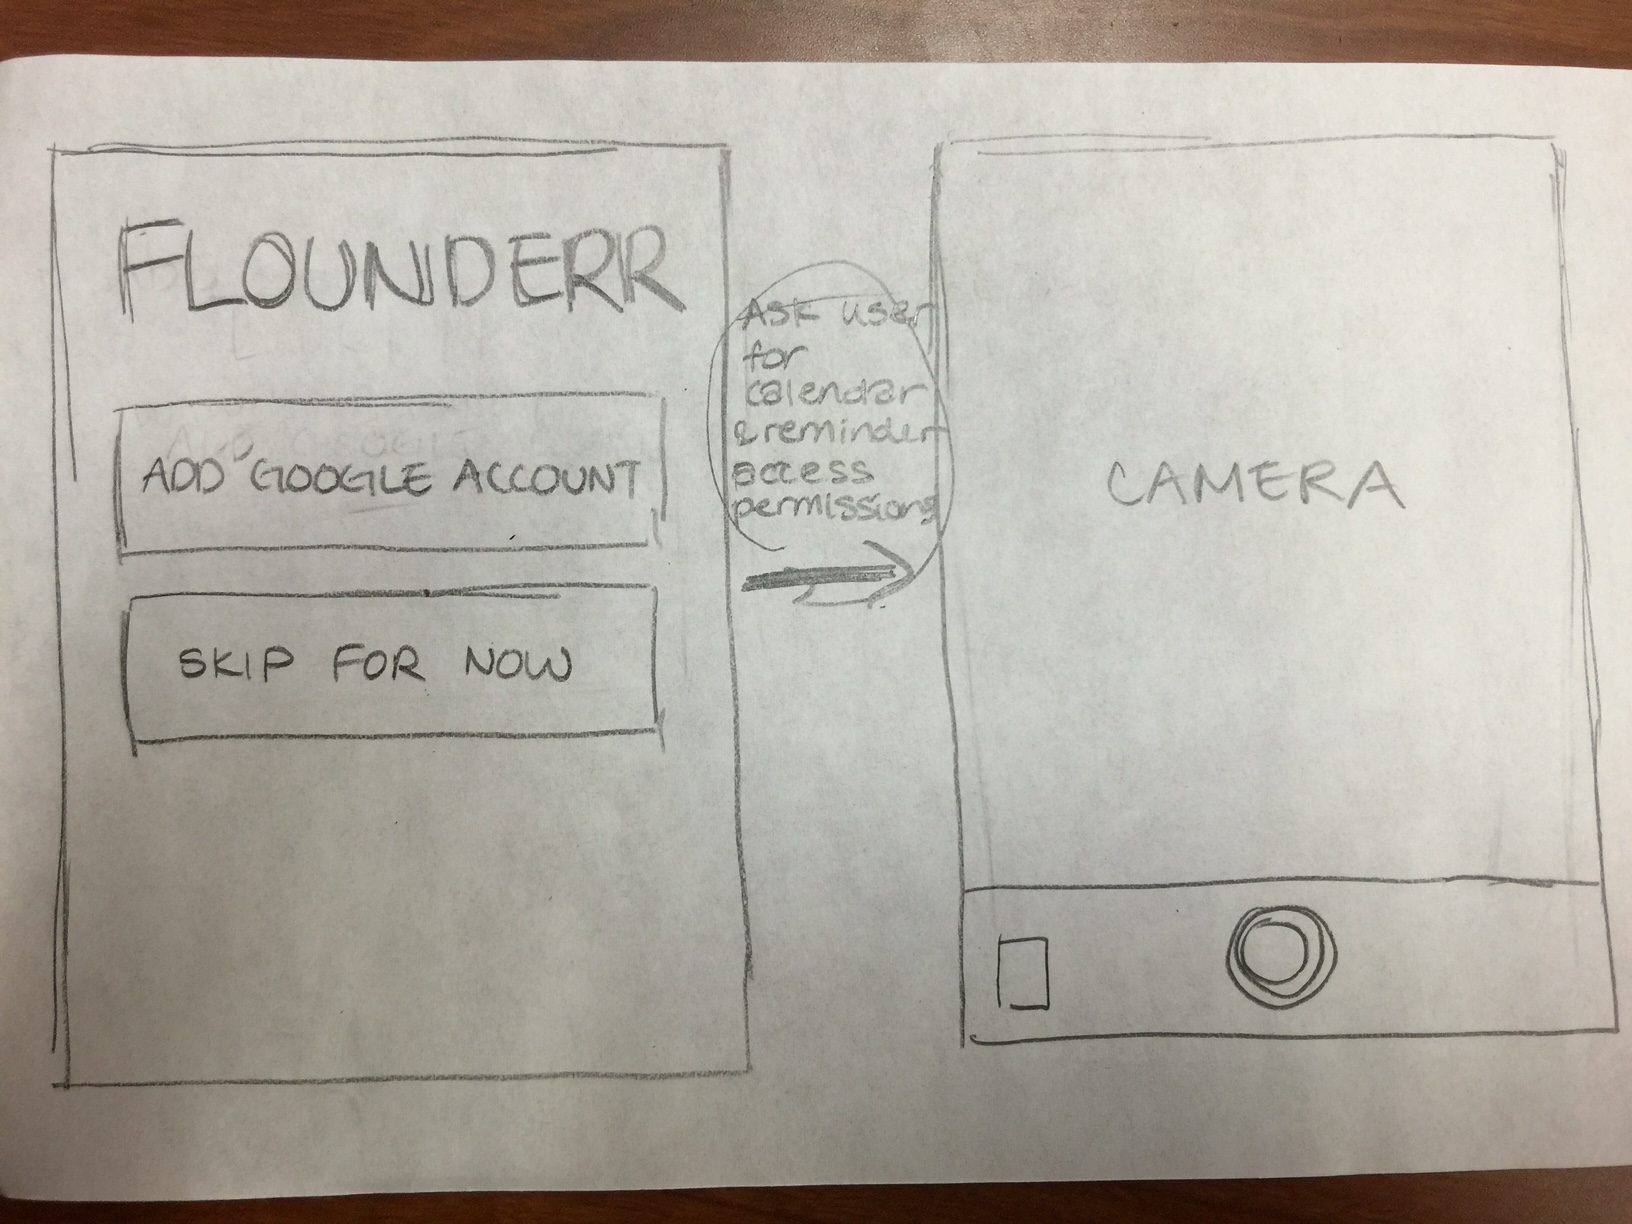 FLOUNDERR
ADD GOOGLE ACCOUNT
SKIP FOR NOW
Ask user
for
calendar
& reminder
access
permissions
CAMERA